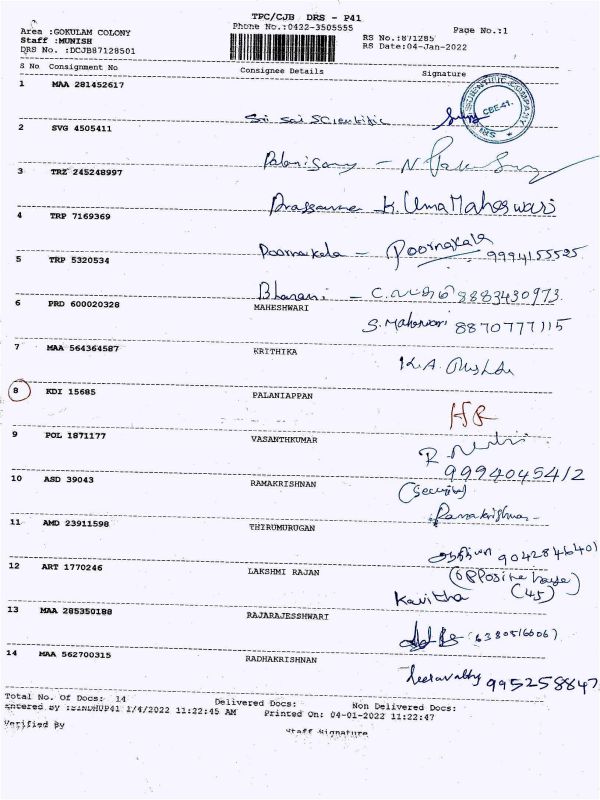 TPC/CJB DRS - P41
Area :GOKULAM COLONY Phone No.:0422-3505555 Page No.:1
Staff :MUNISH RS No.:871285
DRS No. :DCJB87128501 RS Date:04-Jan-2022
S No Consignment No Consignee Details Signature
1 MAA 281452617
Sri Sai Scientific
SRI SAI SCIENTIFIC COMPANY CBE-41.
2 SVG 4505411
Palanisamy -
3 TRZ 245248997
Prassanna - K. Uma Maheswari
4 TRP 7169369
Poornakala - Poornakala 9994155525
5 TRP 5320534
Bharani - 8883430973
6 PRD 600020328 MAHESHWARI
S. Maheswari 8870777115
7 MAA 564364587 KRITHIKA
K.A.
8 KDI 15685 PALANIAPPAN
9 POL 1871177 VASANTHKUMAR
R.
9994045412
10 ASD 39043 RAMAKRISHNAN (Security)
Ramakrishnan
11 AMD 23911598 THIRUMURUGAN
9042846401
12 ART 1770246 LAKSHMI RAJAN (Opposite house)
Kavitha (45)
13 MAA 285350188 RAJARAJESSHWARI
(6380516606)
14 MAA 562700315 RADHAKRISHNAN
Leelavathy 995258847
Total No. Of Docs: 14 Delivered Docs: Non Delivered Docs:
Entered By :SINDHUP41 1/4/2022 11:22:45 AM Printed On: 04-01-2022 11:22:47
Verified By Staff Signature